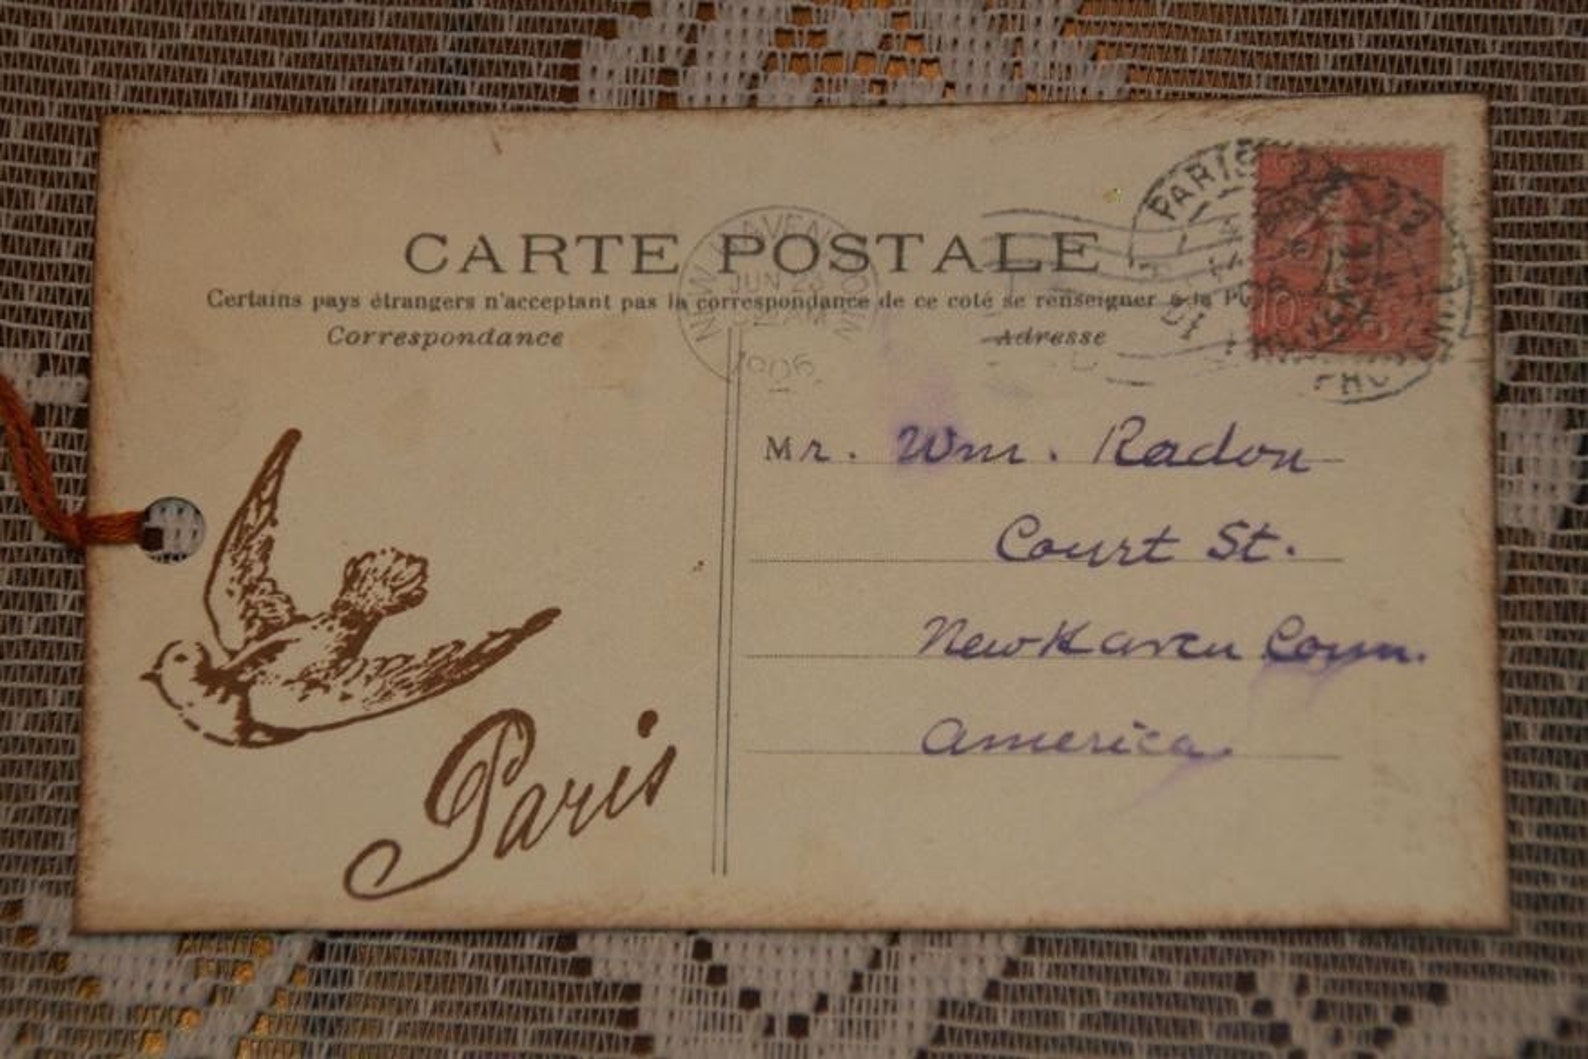 CARTE POSTALE
Certains pays étrangers n'acceptant pas la correspondance de ce coté se renseigner à la
Correspondance
Adresse
PARIS
NEW HAVEN CONN
JUN 23
1906
10
Mr. Wm. Radon
Court St.
New Haven Conn.
America
Paris